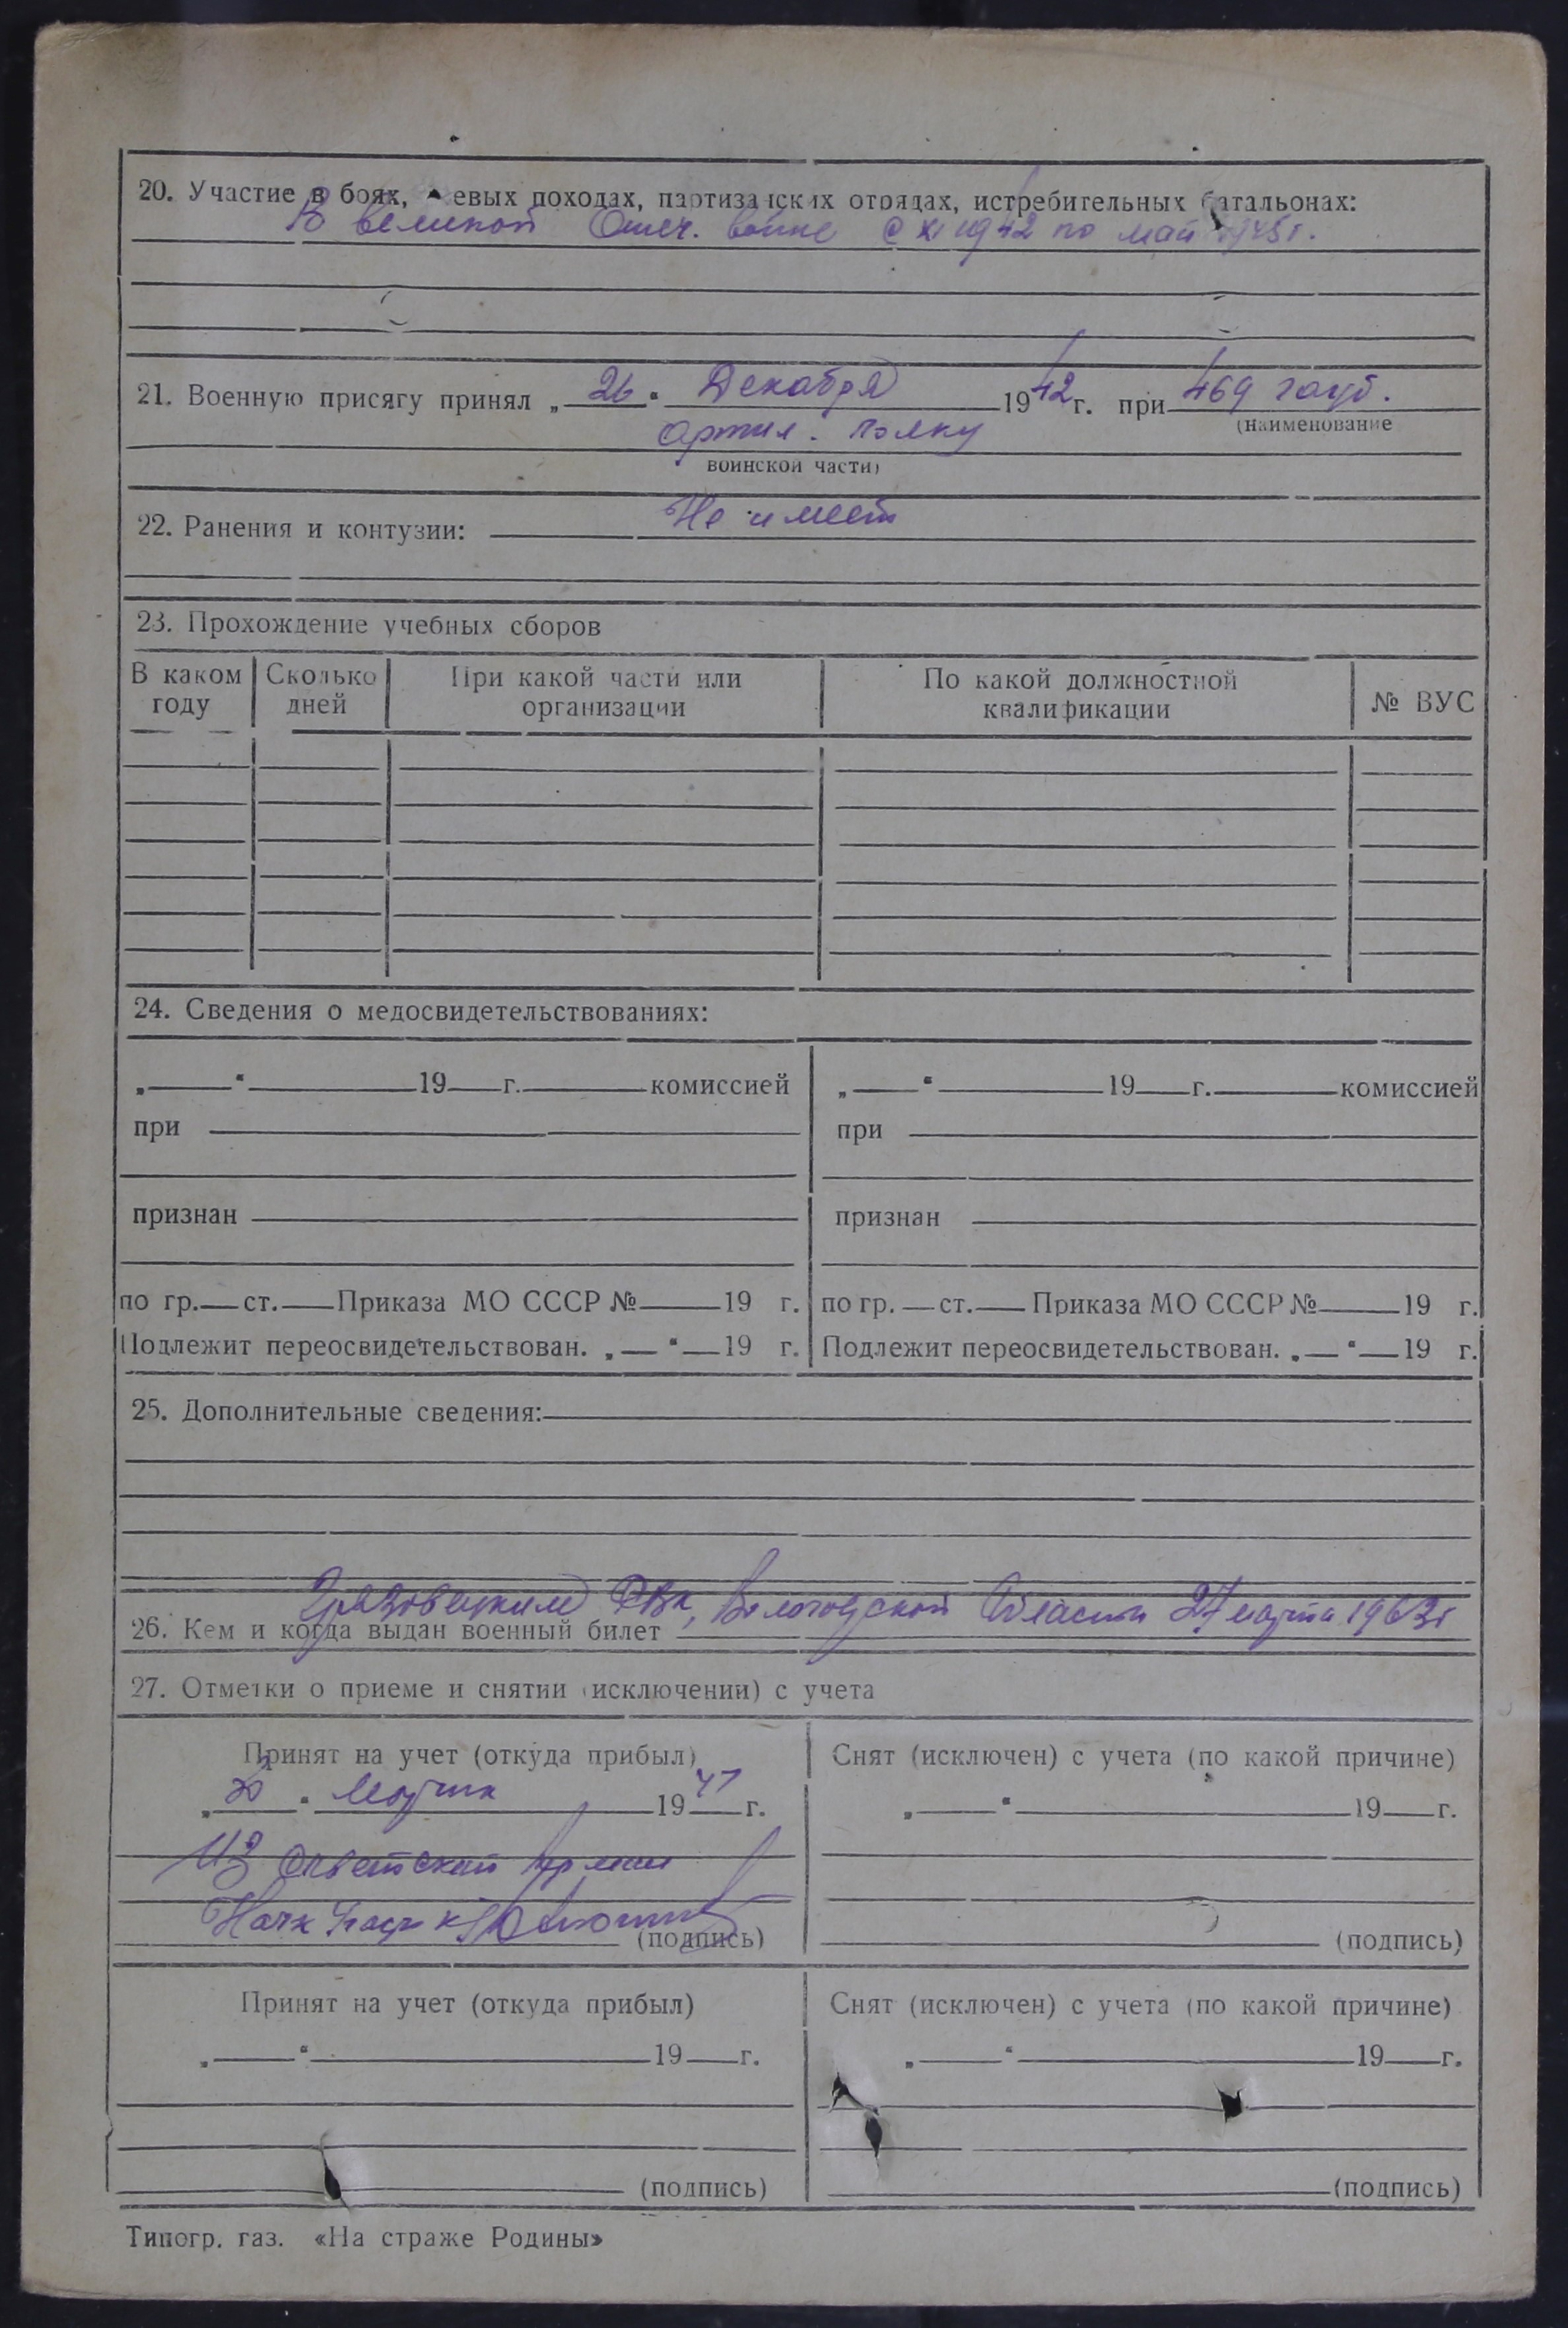 20. Участие в боях, евых походах, партизанских отрядах, истребительных батальонах:
В великой Отеч. войне с XI 1942 по май 1945 г.
21. Военную присягу принял „ 26 “ Декабря 1942 г. при 469 гауб.
(наименование
артил. полку
воинской части)
22. Ранения и контузии: Не имеет
23. Прохождение учебных сборов
В каком году
Сколько дней
При какой части или организации
По какой должностной квалификации
№ ВУС
24. Сведения о медосвидетельствованиях:
„ “ 19 г. комиссией
при
признан
по гр. ст. Приказа МО СССР № 19 г.
Подлежит переосвидетельствован. „ “ 19 г.
„ “ 19 г. комиссией
при
признан
по гр. ст. Приказа МО СССР № 19 г.
Подлежит переосвидетельствован. „ “ 19 г.
25. Дополнительные сведения:
Грязовецким РВК, Вологодской Области 27 марта 1963 г
26. Кем и когда выдан военный билет
27. Отметки о приеме и снятии (исключении) с учета
Принят на учет (откуда прибыл)
„ “ Марта 1947 г.
Из Советской Армии
Нач
(подпись)
Снят (исключен) с учета (по какой причине)
„ “ 19 г.
(подпись)
Принят на учет (откуда прибыл)
„ “ 19 г.
(подпись)
Снят (исключен) с учета (по какой причине)
„ “ 19 г.
(подпись)
Типогр. газ. «На страже Родины»